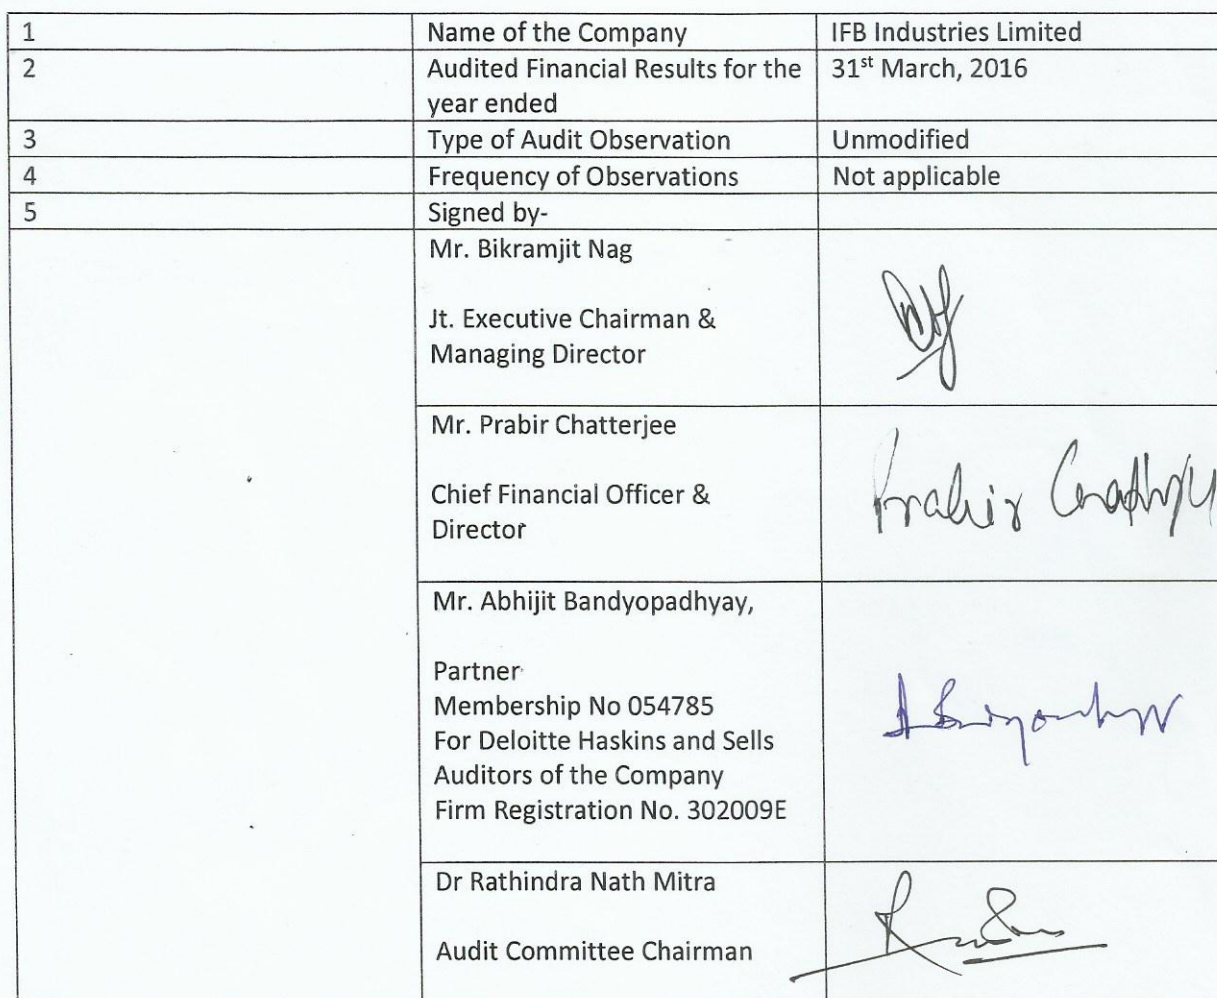 1 Name of the Company IFB Industries Limited
2 Audited Financial Results for the 31st March, 2016
year ended
3 Type of Audit Observation Unmodified
4 Frequency of Observations Not applicable
5 Signed by-
Mr. Bikramjit Nag
Jt. Executive Chairman &
Managing Director
Mr. Prabir Chatterjee
Prabir
Chief Financial Officer &
Director
Mr. Abhijit Bandyopadhyay,
Partner
Membership No 054785
For Deloitte Haskins and Sells
Auditors of the Company
Firm Registration No. 302009E
Dr Rathindra Nath Mitra
Audit Committee Chairman